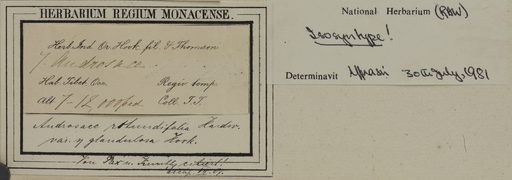 HERBARIUM REGIUM MONACENSE.
Herb. Ind. Or. Hook. fil. & Thomson
Androsace
Hab. Tibet. Occ. Regio temp.
Alt. 7-12,000 ped. Coll. T.T.
Androsace rotundifolia Hardw.
var. γ glandulosa Hook.
Von Pax u. Knuth citiert!
National Herbarium (RAW)
Isosyntype!
Determinavit 30th July, 1981